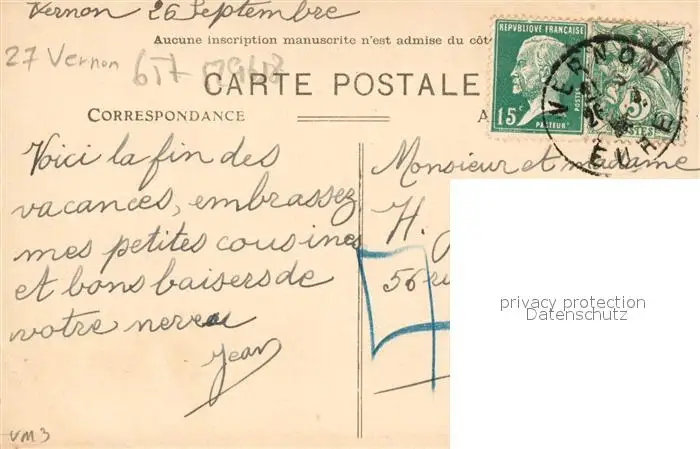 Vernon 26 Septembre
Aucune inscription manuscrite n'est admise du côt
27 Vernon 6T7
CARTE POSTALE
CORRESPONDANCE A
REPUBLIQUE FRANÇAISE
POSTES
15c
PASTEUR
5
POSTES
VERNON
EURE
Voici la fin des
vacances, embrassez
mes petites cousines
et bons baisers de
votre neveu
Jean
Monsieur et madame
H.
56 ru
privacy protection
Datenschutz
VM3